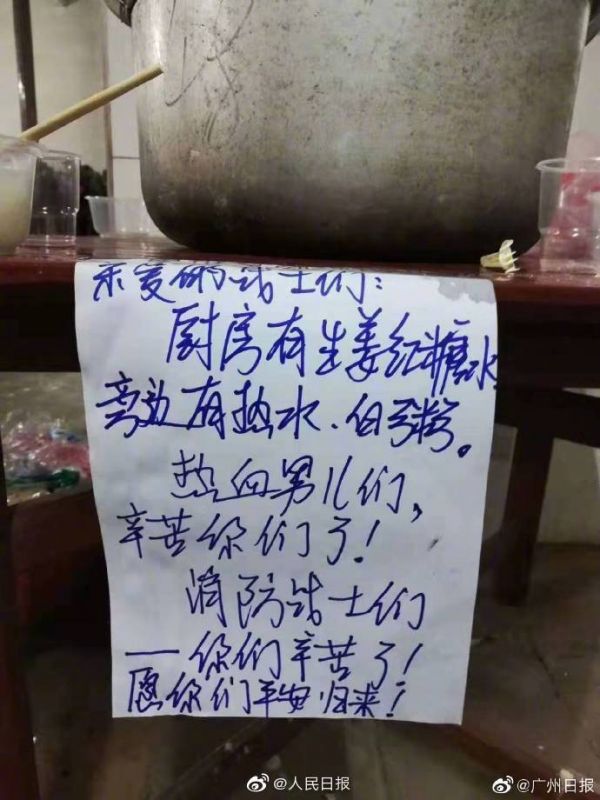 亲爱的战士们：
厨房有生姜红糖水
旁边有热水、白粥。
热血男儿们，
辛苦你们了！
消防战士们
——你们辛苦了！
愿你们平安归来！
@人民日报
@广州日报